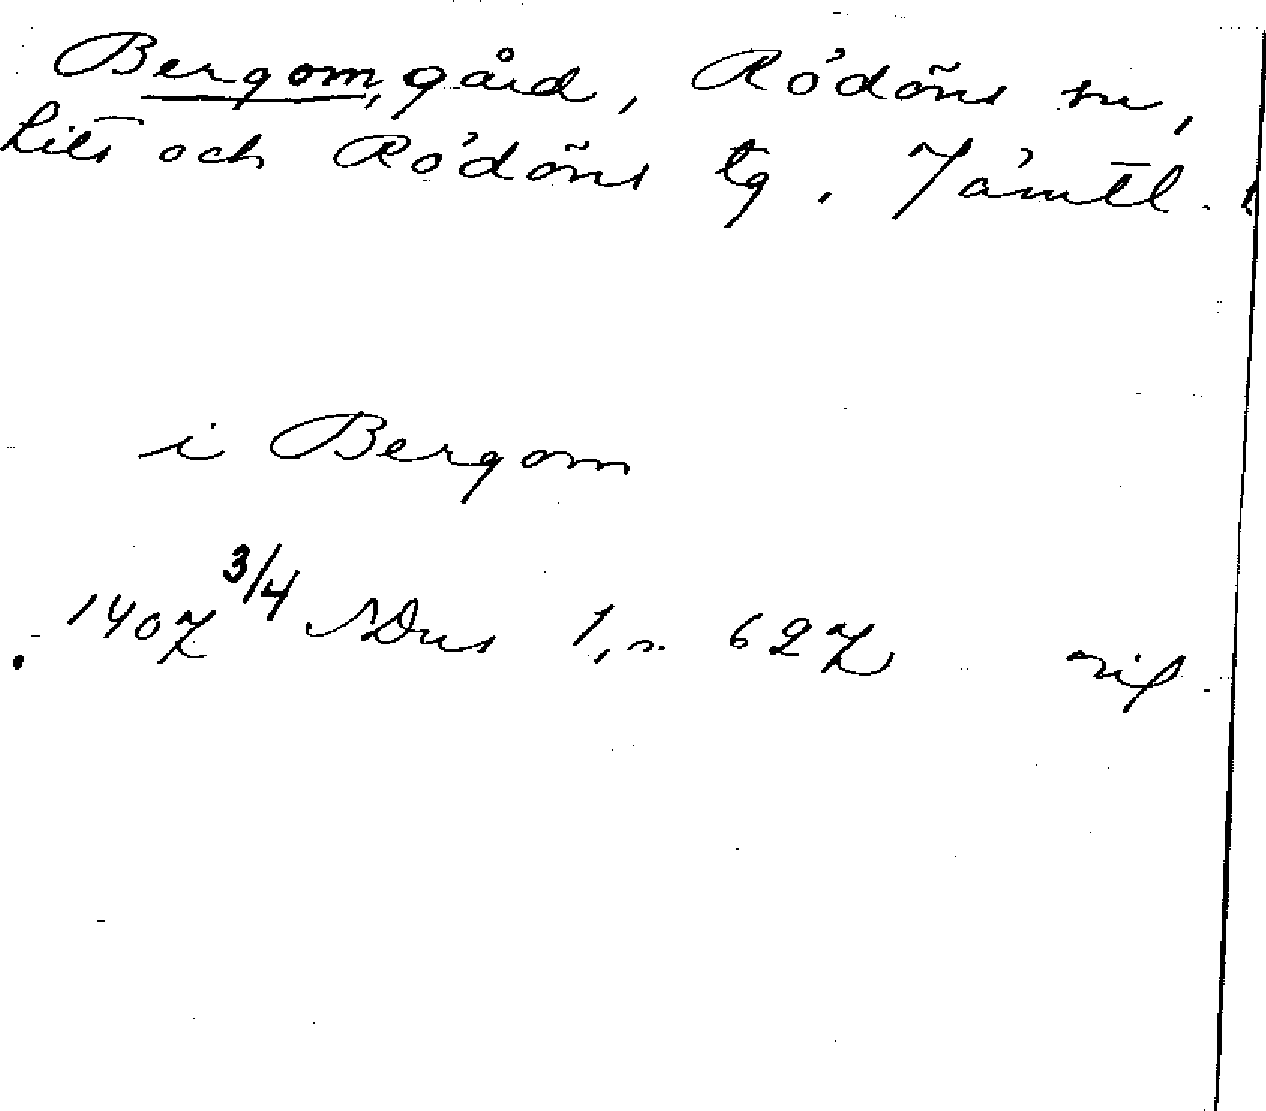 Bergom, gård, Rödöns sn,
Lits och Rödöns tg. Jämtl. l
i Bergom
1407 3/4 SDns 1, n. 627